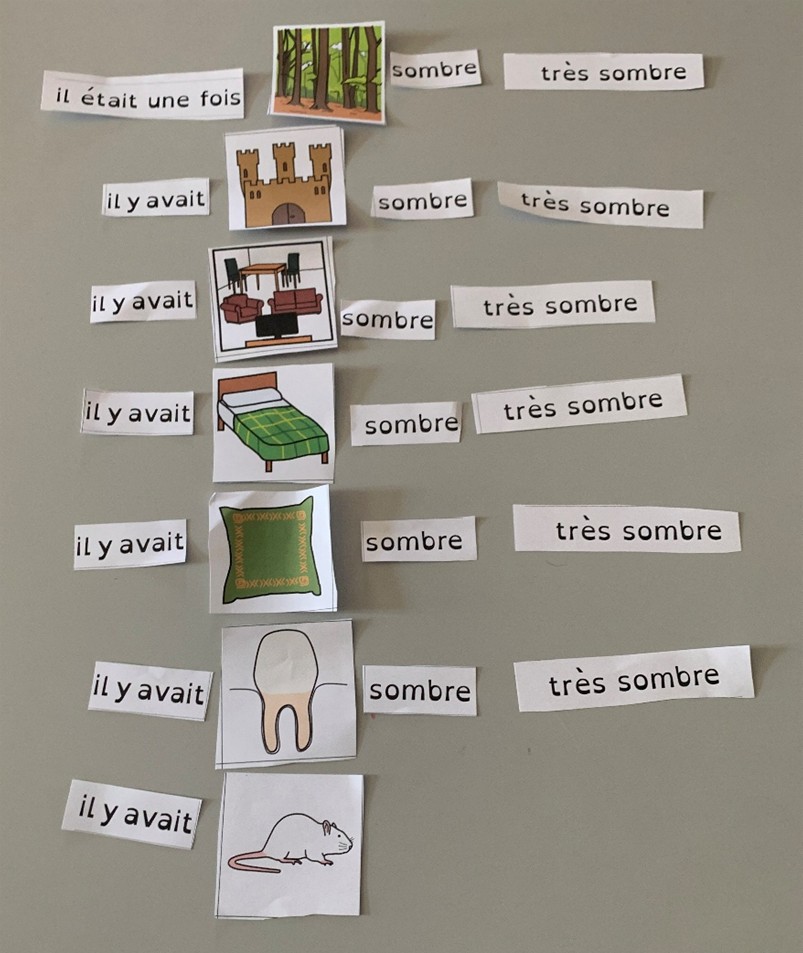 il était une fois sombre très sombre
il y avait sombre très sombre
il y avait sombre très sombre
il y avait sombre très sombre
il y avait sombre très sombre
il y avait sombre très sombre
il y avait